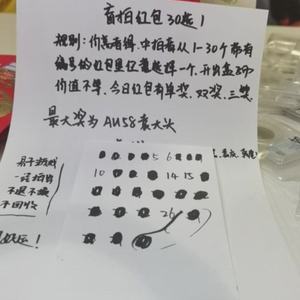 盲拍红包30选1
规则：价高者得，中拍者从1-30个带有
编号的红包里任意选择一个，开出盒子
价值不等，今日红包有单奖，双奖，三奖
最大奖为AU58袁大头
易干游戏
一经拍出
不退不换
不回收
好运！
5 6
10 14 15
26